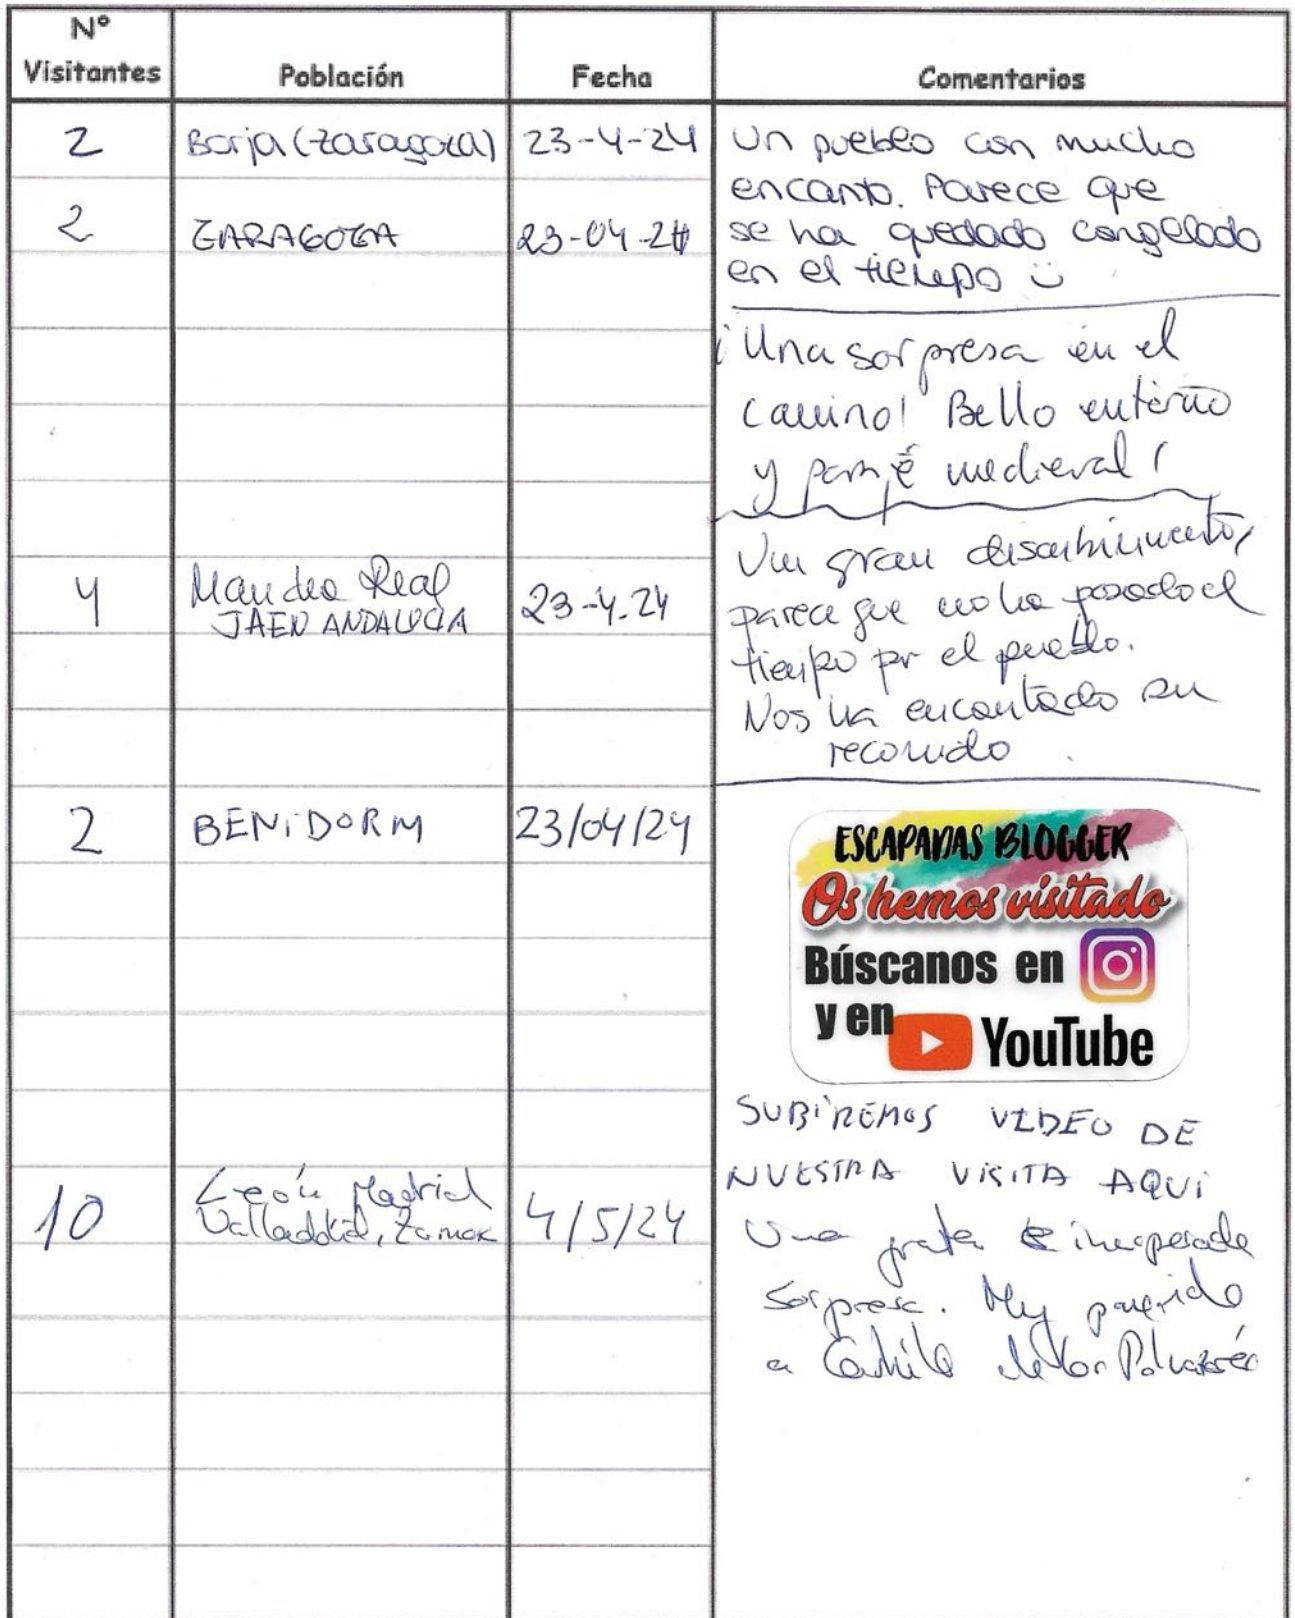 Nº
Visitantes
Población
Fecha
Comentarios
2
Borja (Zaragoza)
23-4-24
Un pueblo con mucho
encanto. Parece que
se ha quedado congelado
en el tiempo
2
ZARAGOZA
23-04-24
¡Una sorpresa en el
camino! Bello entorno
y medieval!
4
Mancha Real
JAEN ANDALUCIA
23-4-24
Un gran descubrimiento,
parece que no ha pasado el
tiempo por el pueblo.
Nos ha encantado su
recorrido
2
BENIDORM
23/04/24
ESCAPADAS BLOGGER
Os hemos visitado
Búscanos en
y en
YouTube
SUBIREMOS VIDEO DE
NUESTRA VISITA AQUI
10
León Madrid
Valladolid, Zamora
4/5/24
Una grata e inesperada
sorpresa. Muy parecido
a Castrillo de los Polvazares